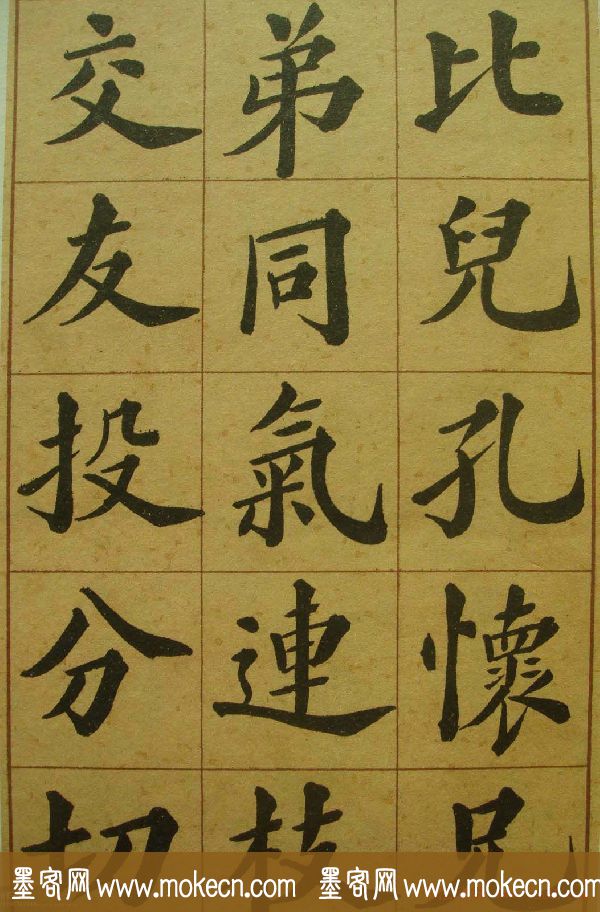 比兒孔懷兄
弟同氣連枝
交友投分切
墨客网 www.mokecn.com 墨客网 www.mokecn.com